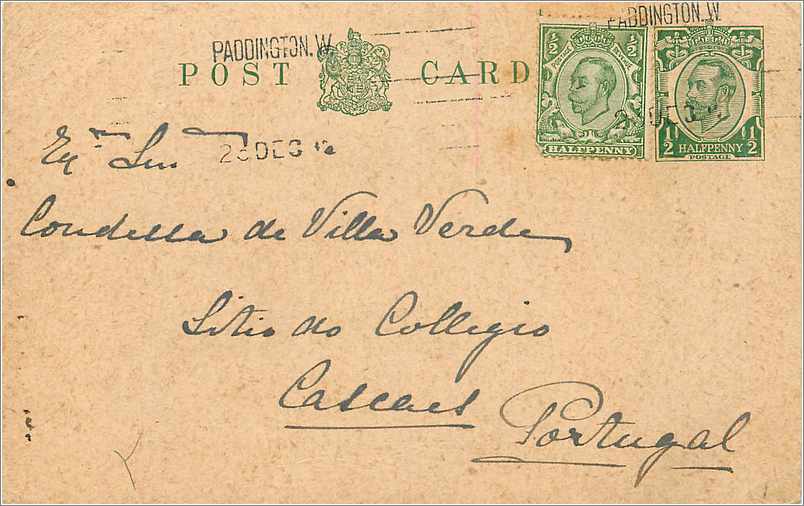 PADDINGTON. W.
PADDINGTON. W.
POST CARD
½ ½
POSTAGE
HALFPENNY
½ ½
HALFPENNY
POSTAGE
Exma Snra
23 DEC 12
Condessa de Villa Verde
Sitio do Collegio
Cascaes
Portugal